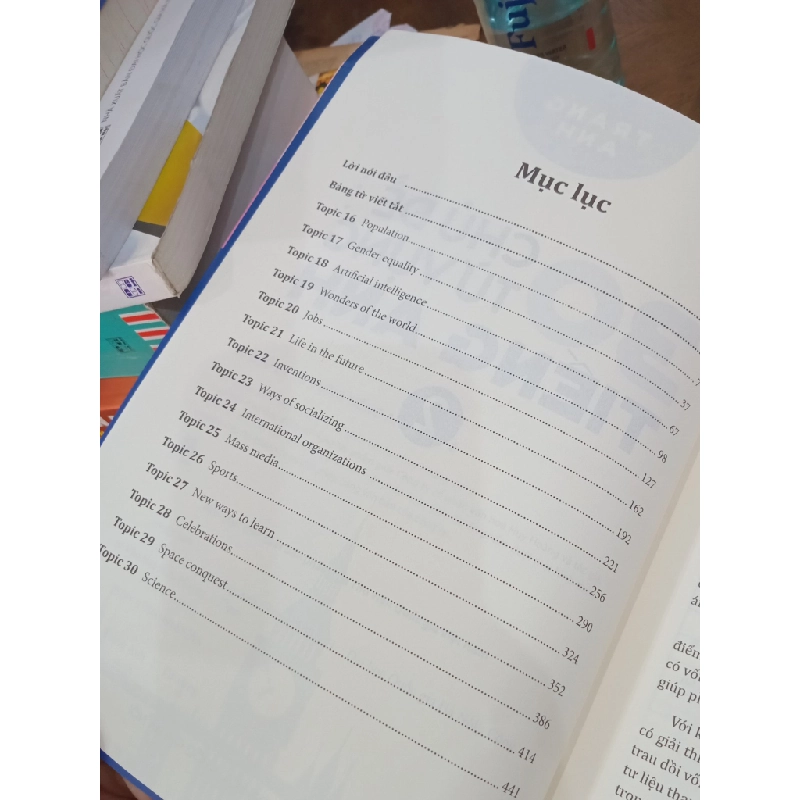 Mục lục
Lời nói đầu
Bảng từ viết tắt
Topic 16 Population 7
Topic 17 Gender equality 37
Topic 18 Artificial intelligence 67
Topic 19 Wonders of the world 98
Topic 20 Jobs 127
Topic 21 Life in the future 162
Topic 22 Inventions 192
Topic 23 Ways of socializing 221
Topic 24 International organizations 256
Topic 25 Mass media 290
Topic 26 Sports 324
Topic 27 New ways to learn 352
Topic 28 Celebrations 386
Topic 29 Space conquest 414
Topic 30 Science 441
điểm
có
giúp
Với
có giải
trau dồi
tư liệu